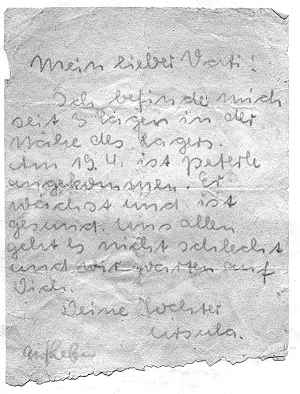 Mein lieber Vati!
Ich befinde mich
seit 3 Tagen in der
Nähe des Lagers.
Am 19.4. ist Peterle
angekommen. Er
wächst und ist
gesund. Uns allen
geht es nicht schlecht
und wir warten auf
Dich.
Deine Tochter
Ursula.
Aufheben